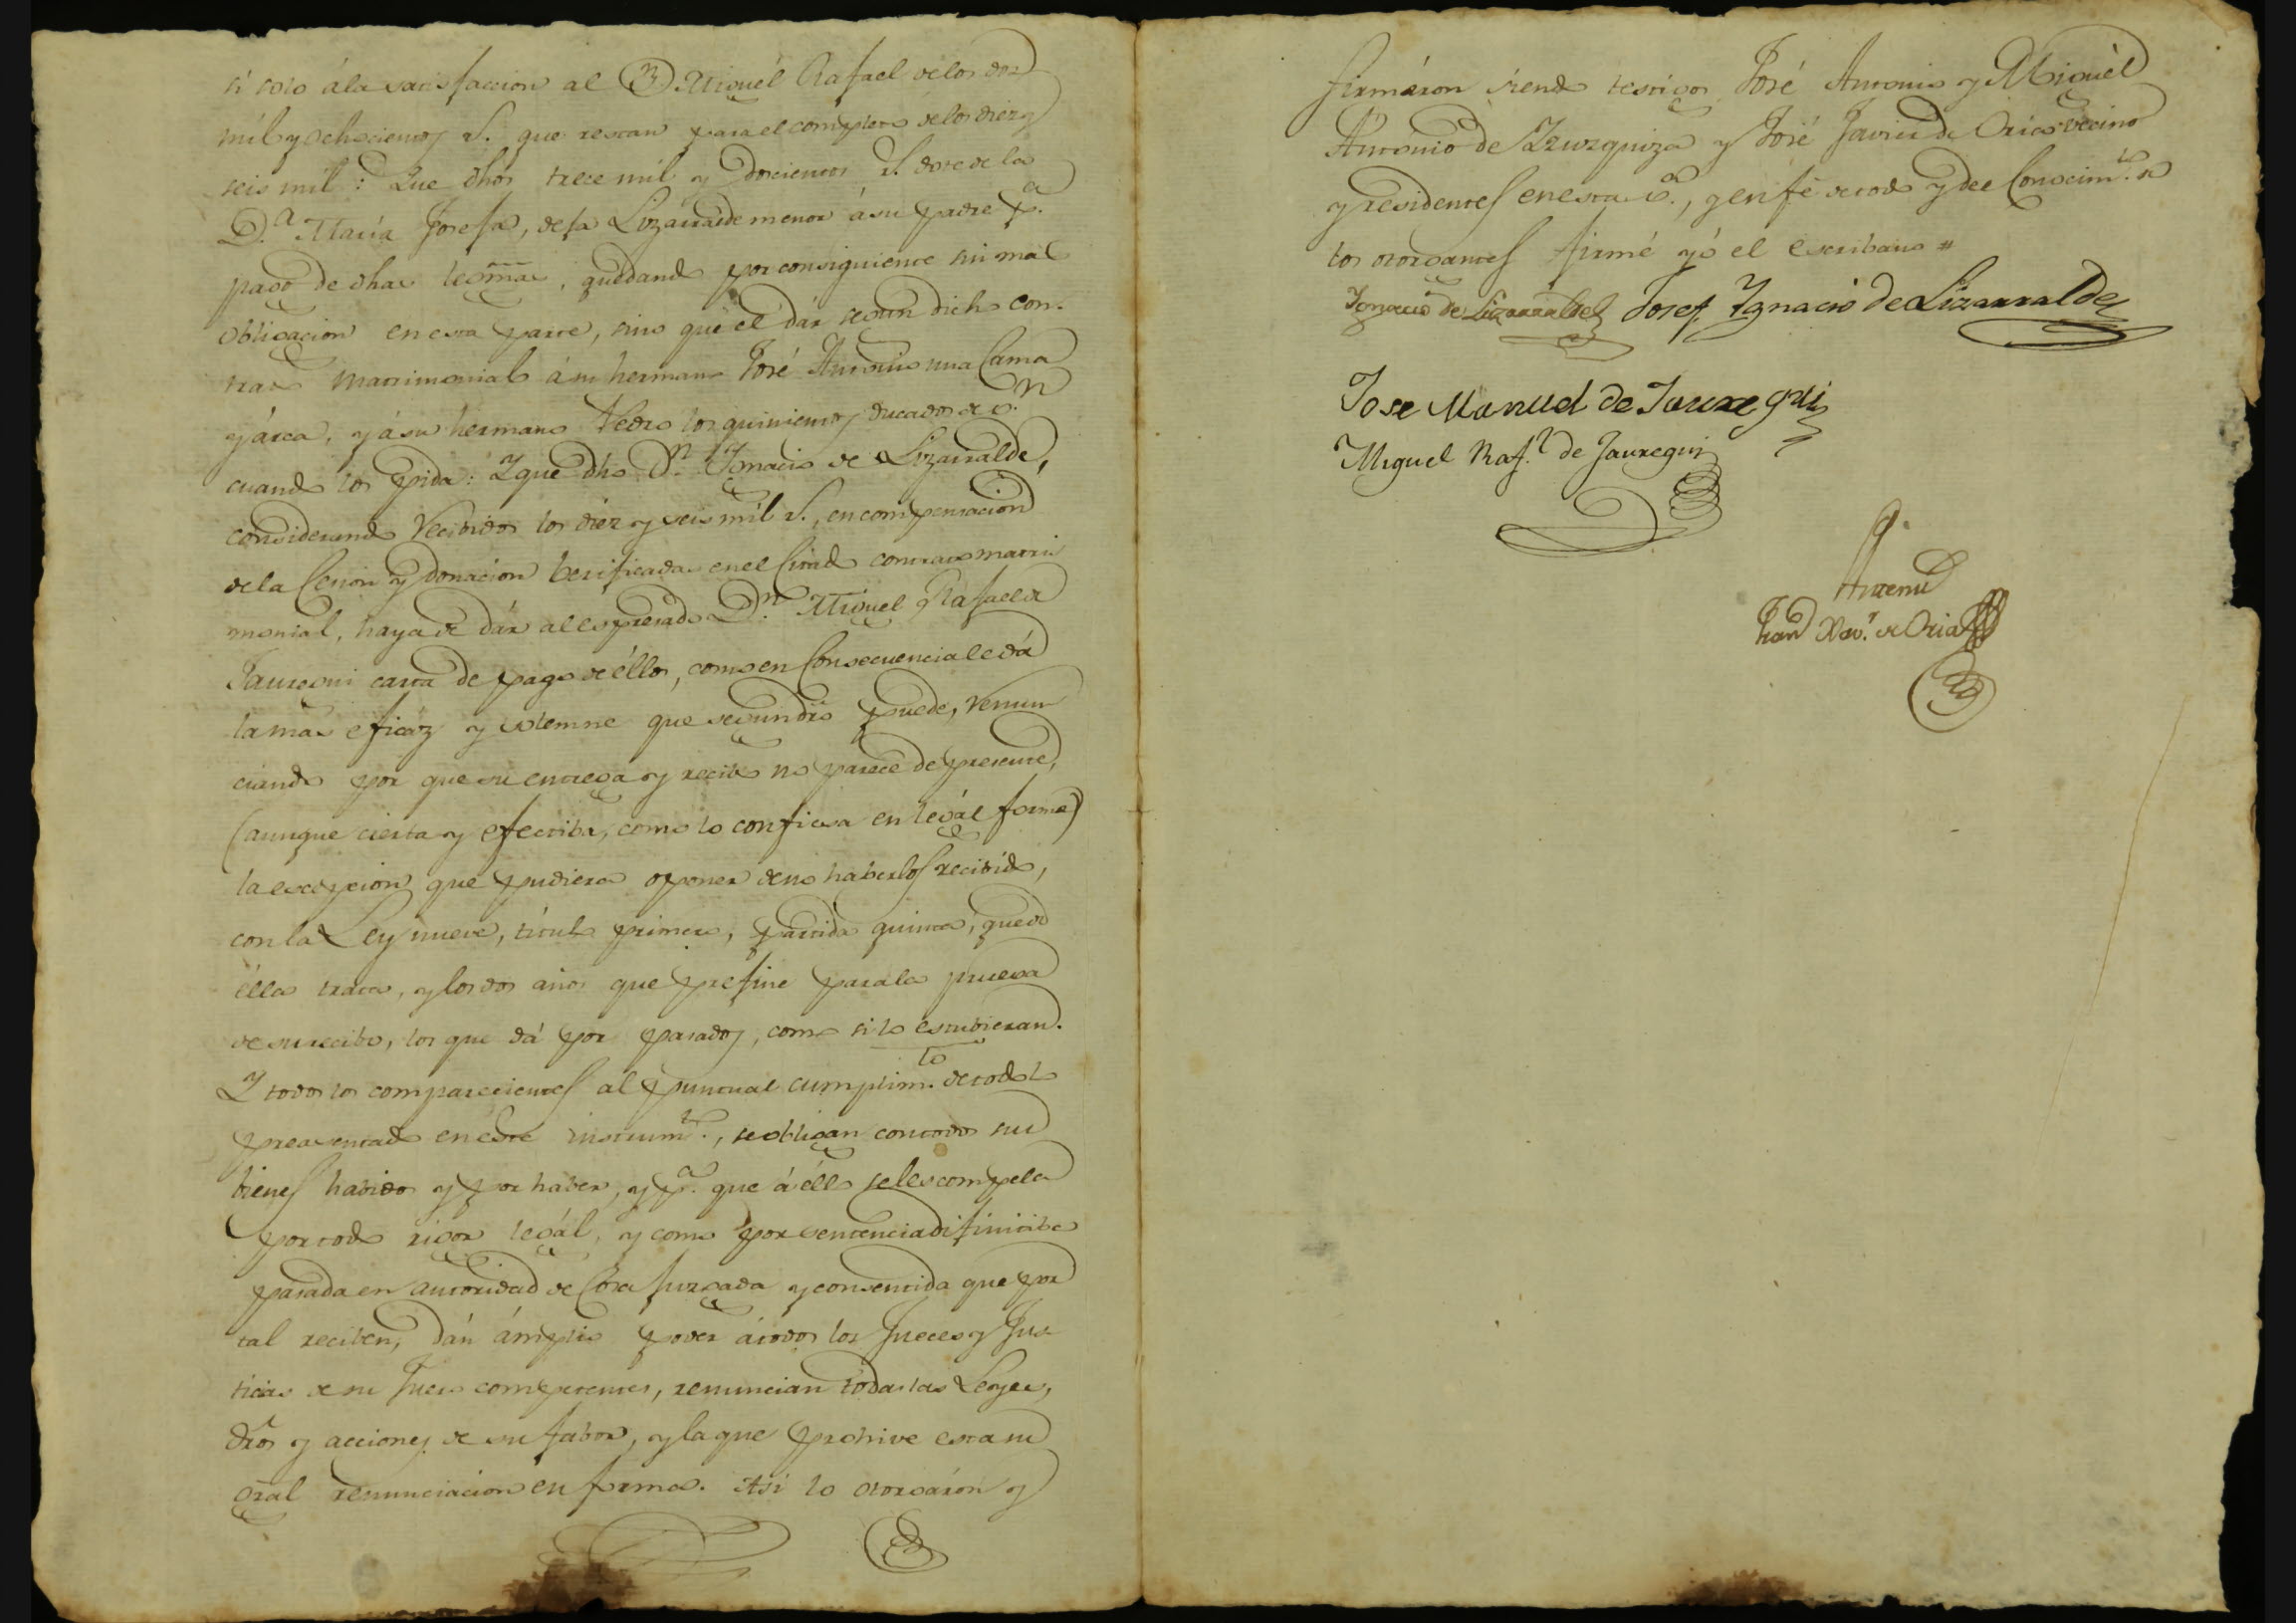 si solo á la satisfaccion al D.n Miguél Rafael de los dos
mil y ochocientos r.s que restan para el completo de los diez y
seis mil: Que dhos trece mil y doscientos r.s dote de la
D.a María Josefa, deja Lizarralde menor á su padre p.a
pago de dhas lexmas, quedando por consiguiente sin mas
obligacion en esta parte, sino que el dár segun dicho con-
trato matrimonial á su hermano José Antonio una Cama
y árca, y á su hermano Pedro los quinientos ducados de v.n
cuando los pida: Y que dho D.n Ygnacio de Lizarralde,
considerando recividos los diez y seis mil r.s, en compensacion
de la Cesion y donacion berificada en el Citado contrato matri
monial, haya de dár al espresado D.n Miguel Rafael de
Jauregui carta de pago de éllos, como en Consecuencia le dá
la mas eficáz y solemne que segun dró puede, renun
ciando por que su entrega y recibo no parece de presente,
(aunque cierta y efectiba, como lo confiesa en legál forma)
la escepcion que pudiera oponer de no haberlos recivido,
con la Ley nueve, titulo primero, partida quinta, que de
élla trata, y los dos años que prefine para la prueva
de su recibo, los que dá por pasados, como si lo estubieran.
Y todos los comparecientes al puntual cumplim.to de todo lo
preasentado en éste instrum.to, se obligan con todos sus
bienes havidos y por haber, y p.a que á éllo se les compela
por todo rigor legál, y como por sentencia difinitiba
pasada en autoridad de Cosa Juzgada y consentida que por
tal reciben, dán ámplio poder á todos los Jueces y Jus-
ticias de su fuero competentes, renuncian todas las Leyes,
dros y acciones de su fabor, y la que prohive esta su
gral renunciacion en forma. Asi lo otorgáron y
firmáron siendo testigos José Antonio y Miguél
António de Yzurquiza y José Javier de Orias vecino
y residentes en esta v.a, y en fé de todo y del Conocim.to de
los otorgantes firmé yó el escribano #
Ygnacio de Lizarralde Josef Ygnacio de Lizarralde
Jose Manuel de Jauregui
Miguel Raf.l de Jauregui
Antemi
Fran.co Xav.r de Oria